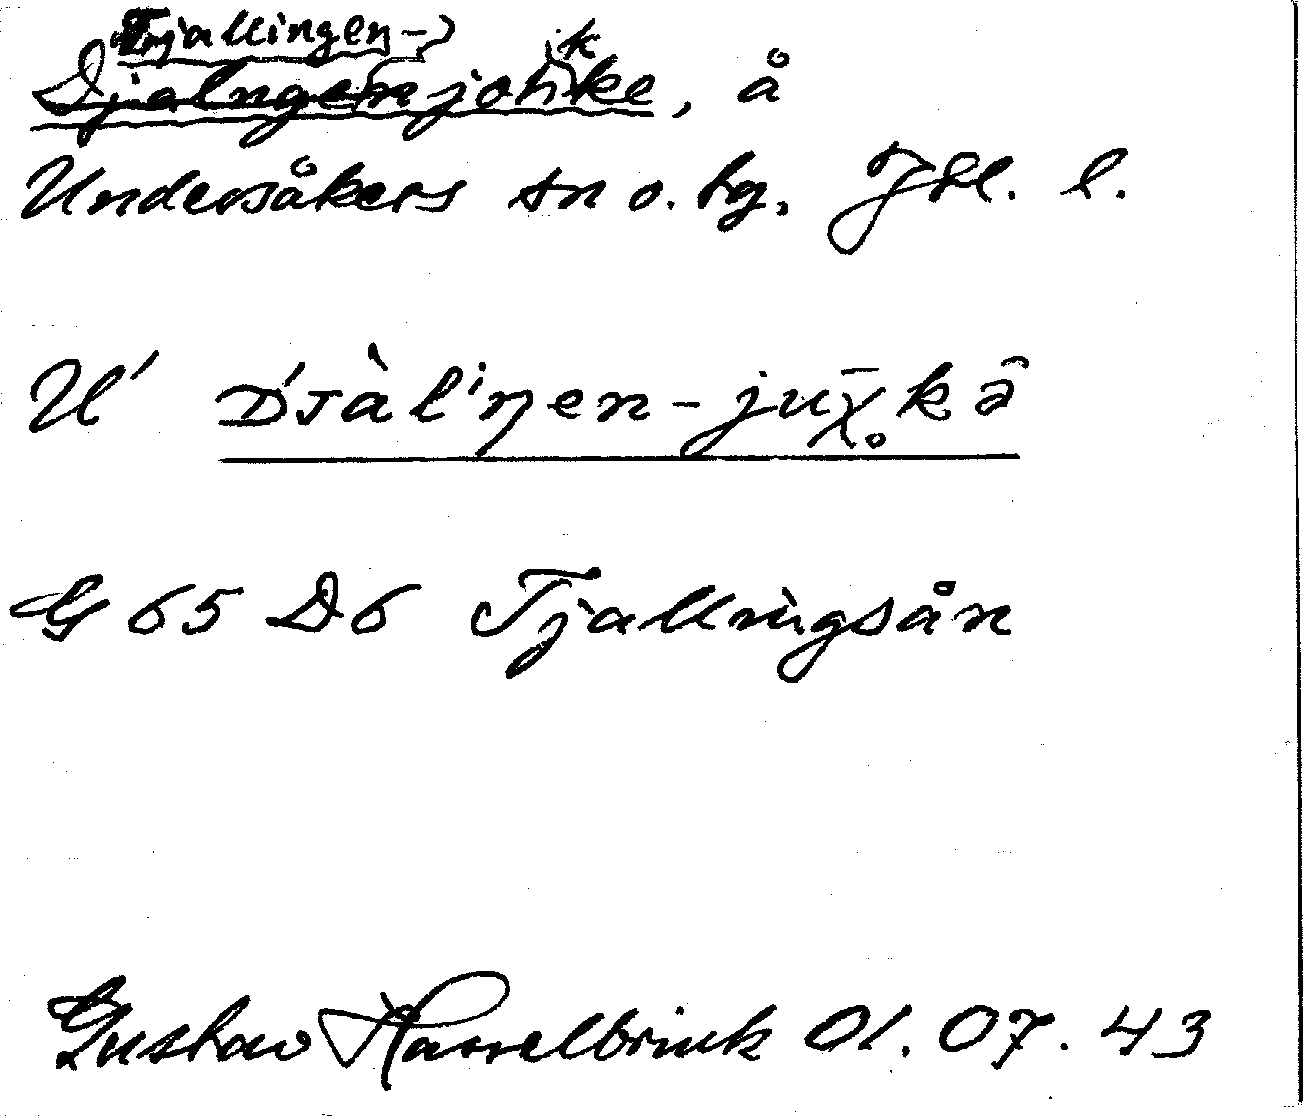 Tjallingen-
Djalngenjohke, å
k
Undersåkers sn o. tg. Jtl. l.
U' Dᴊàlˈiŋen-juχ̥̄kə̑
G 65 D6 Tjallingsån
Gustav Hasselbrink 01.07.43